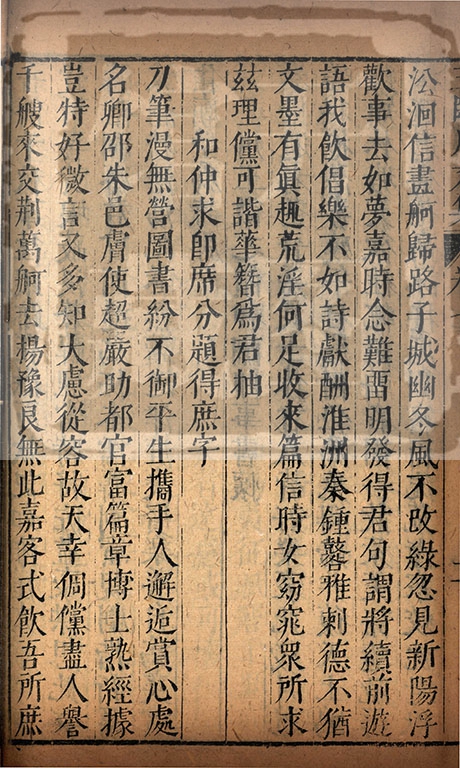 沿洄信畫舸歸路子城幽冬風不改綠忽見新陽浮
歡事去如夢嘉時念難畱明發得君句謂將續前遊
語我飲倡樂不如詩獻酬淮洲秦鍾鼛雅刺德不猶
文墨有眞趣荒淫何足收來篇信時女窈窕衆所求
玆理儻可諧華簪爲君抽
和仲求即席分題得庶字
刀筆漫無營圖書紛不御平生攜手人邂逅賞心處
名卿邵朱邑膚使超嚴助都官富篇章博士熟經據
豈特好微言又多知大慮從容故天幸倜儻盡人譽
千艘來交荆萬舸去揚豫良無此嘉客式飲吾所庶